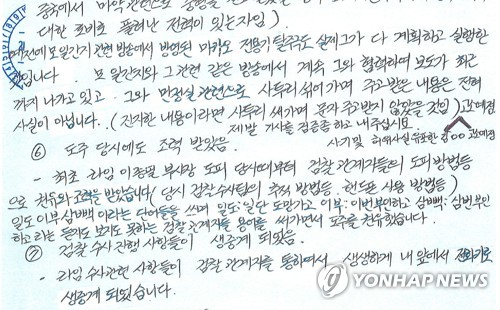 중국에서 마약관련으로 중형을
대한 로비로 풀려난 전력이 있는자임).
예전에 모 일간지 관련 방송에서 방영된 마카오 전용기 탈주도 실제 그가 다 계획하고 실행한
것입니다. 모 일간지와 그 관련 같은 방송에서 계속 그와 협력하여 보도가 최근
까지 나가고 있고, 그와 면정실 관련으로 사투리 섞어가며 주고받은 내용은 전혀
사실이 아닙니다. (진지한 내용이라면 사투리 써가며 문자 주고받지 않았을 것임)
제발 기사를 검증좀 하고 내주십시요. 사기 및 허위사실 유포한 김OO
⑥ 도주 당시에도 조력 받았음.
- 최초 라임 이종필 부사장 도피 당시때부터 검찰 관계자들의 도피방법 등
으로 권유와 조력을 받았습니다 (당시 검찰 수사팀의 추적 방법 등. 핸드폰 사용 방법 등)
일도 이부 삼빽 이라는 단어들을 쓰며 일도: 일단 도망가고 이부: 이번 부인하고 삼빽: 삼번 부인
하고 라는 듣지도 보지도 못하는 검찰 관계자들 용어를 써가면서 도주를 권유했습니다.
⑦ 검찰 수사 진행 사항들이 생중계 되었음.
- 라임 수사관련 사항들이 검찰 관계자를 통하여서 생생하게 내 앞에서 전화기로
생중계 되었습니다.
YONHAP NEWS